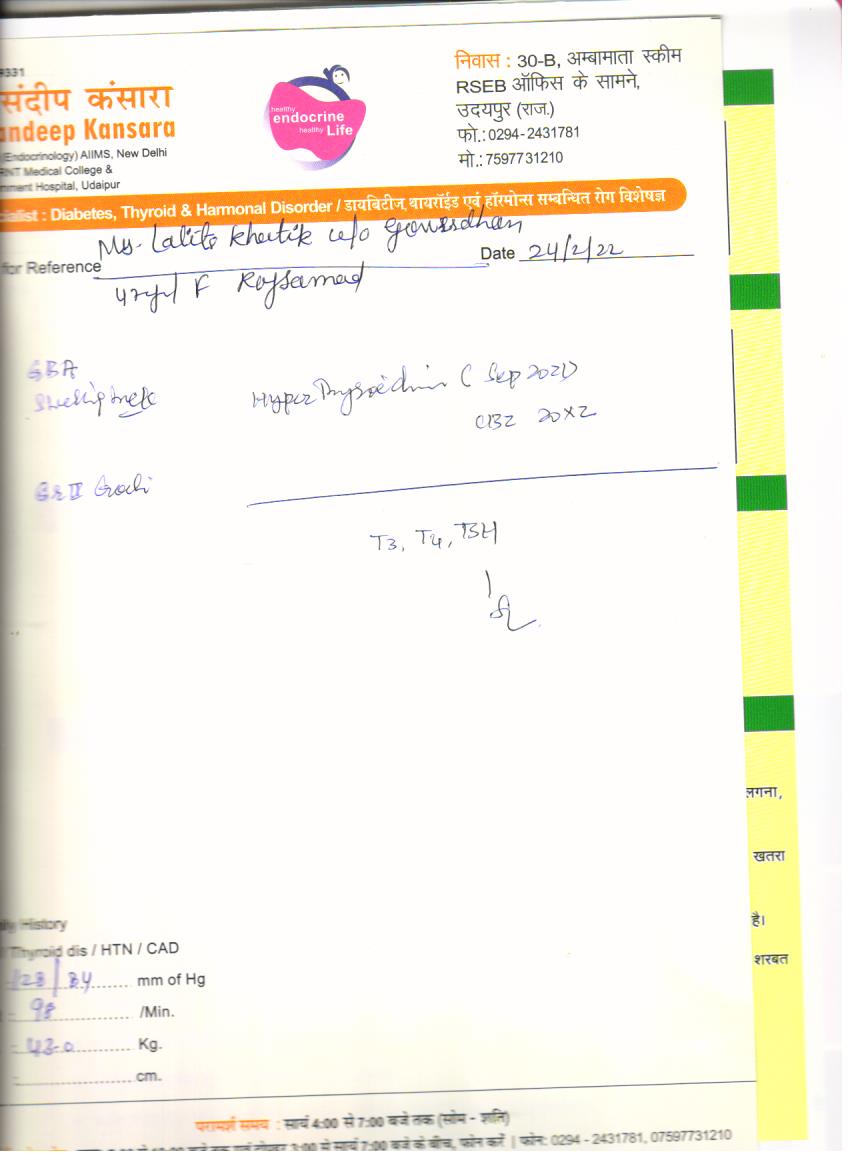 9331
संदीप कंसारा
andeep Kansara
(Endocrinology) AIIMS, New Delhi
RNT Medical College &
nment Hospital, Udaipur
healthy
endocrine
healthy Life
निवास : 30-B, अम्बामाता स्कीम
RSEB ऑफिस के सामने,
उदयपुर (राज.)
फो.: 0294-2431781
मो.: 7597731210
cialist : Diabetes, Thyroid & Harmonal Disorder / डायबिटीज, थायरॉईड एवं हॉरमोन्स सम्बन्धित रोग विशेषज्ञ
for Reference Lalita Khatik w/o
Date 24/2/22
F
(Sep 2021)
CBZ 20x2
Gr II
T3, T4, TSH
लगना,
खतरा
है।
शरबत
ily History
Thyroid dis / HTN / CAD
128/84 mm of Hg
98 /Min.
43.0 Kg.
cm.
परामर्श समय : सायं 4:00 से 7:00 बजे तक (सोम - शनि)
3:00 से सायं 7:00 बजे के बीच, फोन करें | फोन: 0294 - 2431781, 07597731210